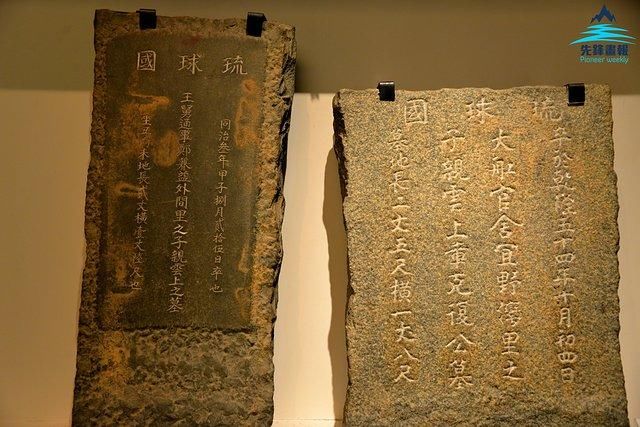 琉球國
同治叁年甲子捌月貳拾伍日卒也
王舅通事那霸外間里之子親雲上之墓
未地長貳丈橫壹丈陸尺也
琉球國
卒於乾隆五十四年十月初四日
大舡官舍宜野灣里之
子親雲上童克復公墓
墓地長二丈五尺橫一丈八尺
先鋒畫報
Pioneer weekly